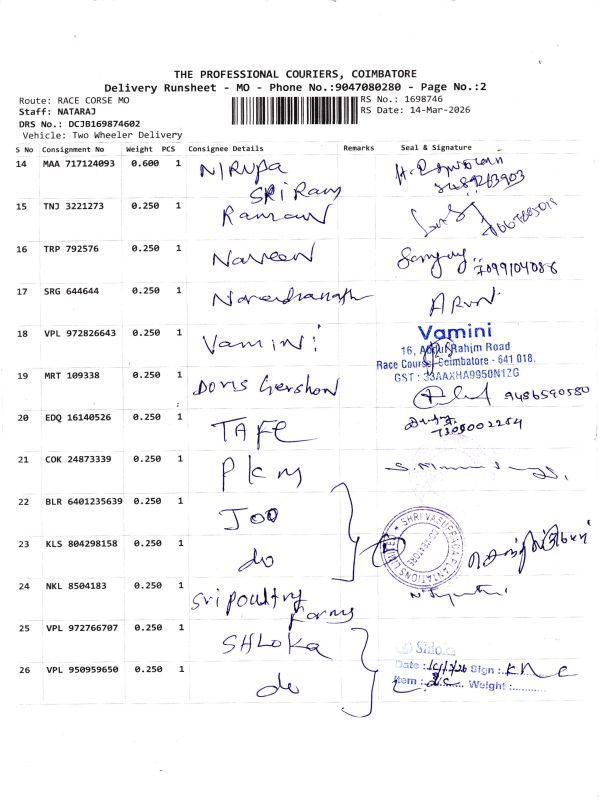 THE PROFESSIONAL COURIERS, COIMBATORE
Delivery Runsheet - MO - Phone No.:9047080280 - Page No.:2
Route: RACE CORSE MO
RS No.: 1698746
Staff: NATARAJ
RS Date: 14-Mar-2026
DRS No.: DCJB169874602
Vehicle: Two Wheeler Delivery
S No Consignment No Weight PCS Consignee Details Remarks Seal & Signature
14 MAA 717124093 0.600 1 NIRUPA
SRIRAM
15 TNJ 3221273 0.250 1 Raman
16 TRP 792576 0.250 1 Naveen Sanjay 7099104086
17 SRG 644644 0.250 1 Narendranath ARUN
18 VPL 972826643 0.250 1 Vamini
Vamini
16, Abdul Rahim Road
Race Course, Coimbatore - 641 018.
GST : 33AAXHA9950N1ZG
19 MRT 109338 0.250 1 Doris Gershon 9486590580
20 EDQ 16140526 0.250 1 TAFE
21 COK 24873339 0.250 1 PKM
22 BLR 6401235639 0.250 1 JOO
SHRI VASUPRADA PLANTATIONS LIMITED
COIMBATORE
23 KLS 804298158 0.250 1 do
24 NKL 8504183 0.250 1 Sri poultry
Farms
25 VPL 972766707 0.250 1 SHLOKA
Shloka
Date : Sign :
26 VPL 950959650 0.250 1 do
Item : Weight :